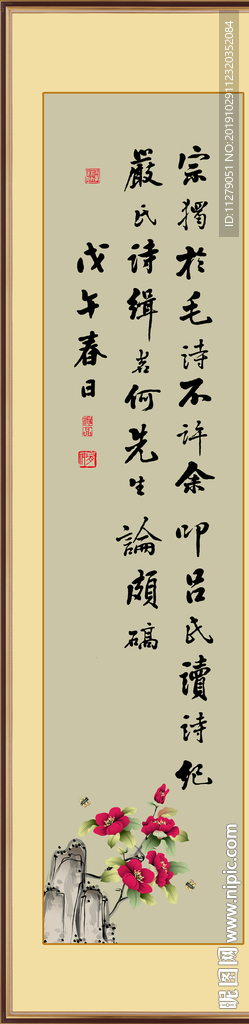 宗獨於毛詩不許余叩呂氏讀詩紀
嚴氏詩緝若何先生論頗碻
戊午春日
ID:11279051 NO:20191029112320352084
昵图网 www.nipic.com